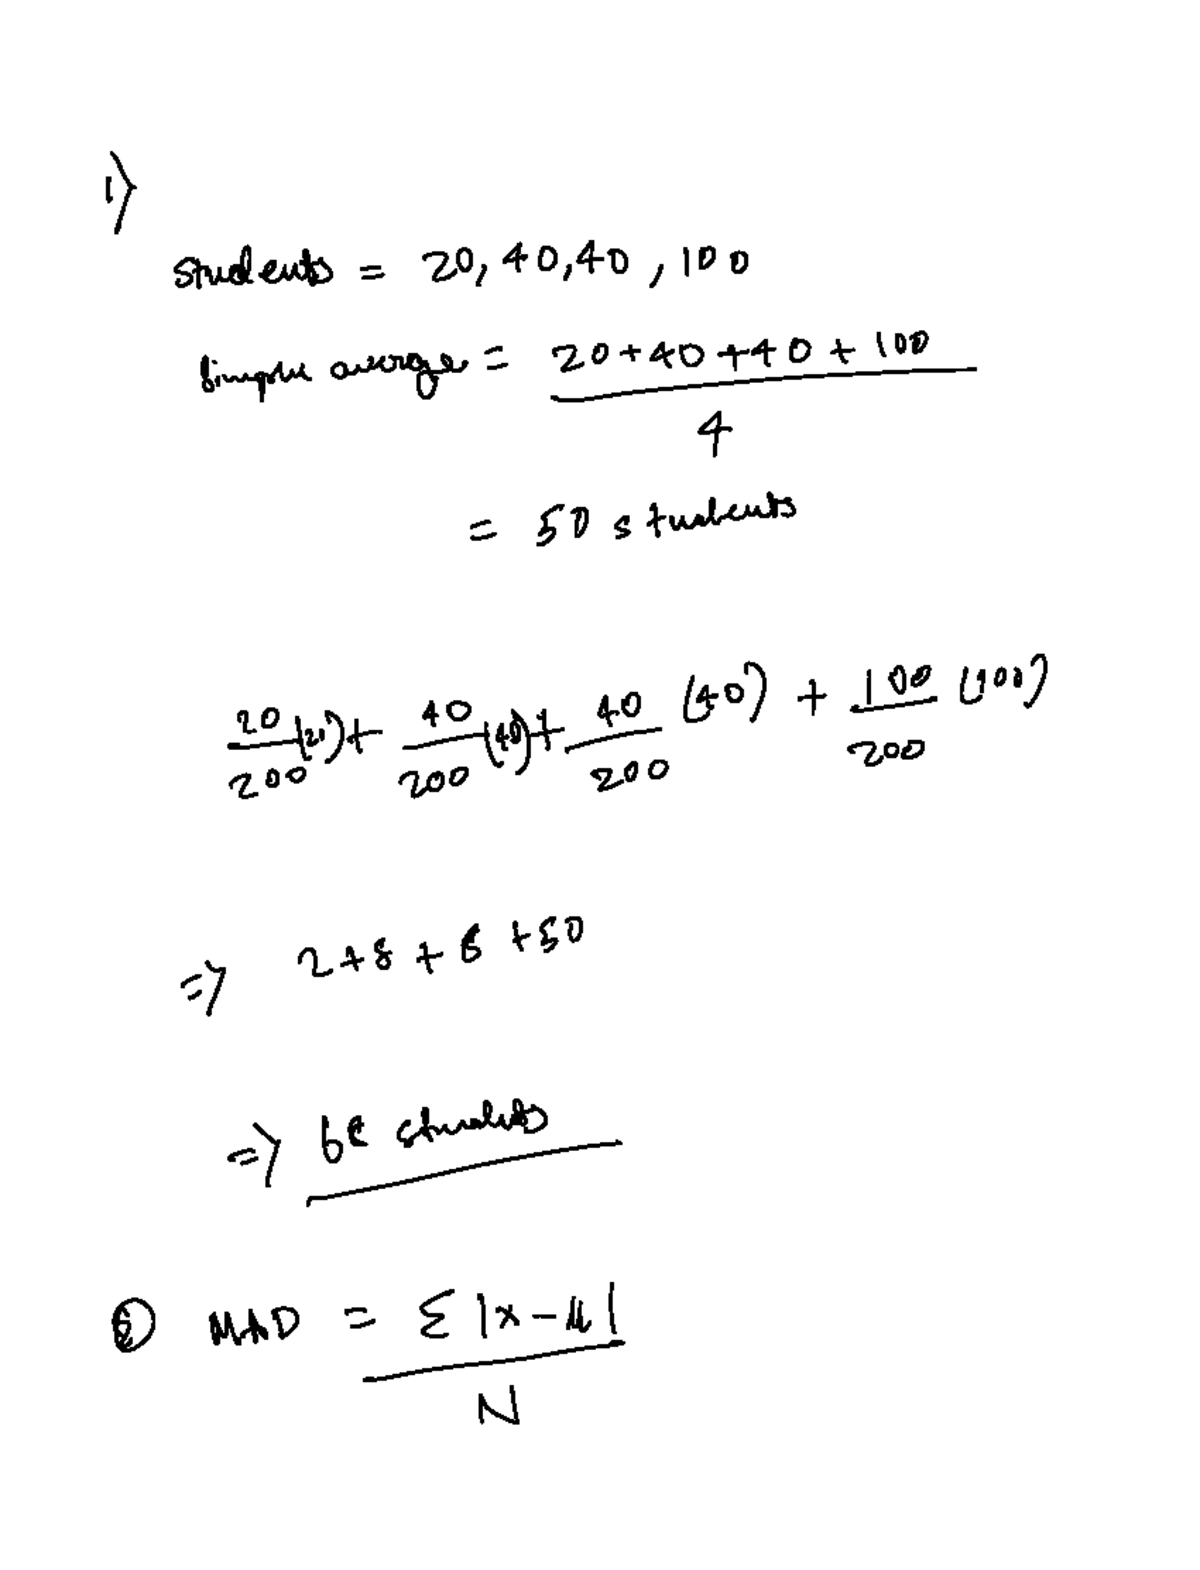 1)
students = 20, 40, 40, 100
Simple average = 20 + 40 + 40 + 100
4
= 50 students
20/200 (20) + 40/200 (40) + 40/200 (40) + 100/200 (100)
=> 2 + 8 + 8 + 50
=> 68 students
② MAD = Σ |x - μ|
N